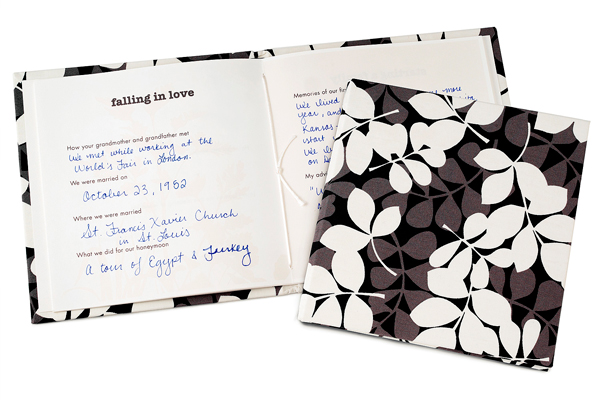 falling in love
How your grandmother and grandfather met
We met while working at the
World's Fair in London.
We were married on
October 23, 1952
Where we were married
St. Francis Xavier Church
in St. Louis
What we did for our honeymoon
A tour of Egypt & Turkey
Memories of our
We lived more
year, and
Kansas
start
We
on
My